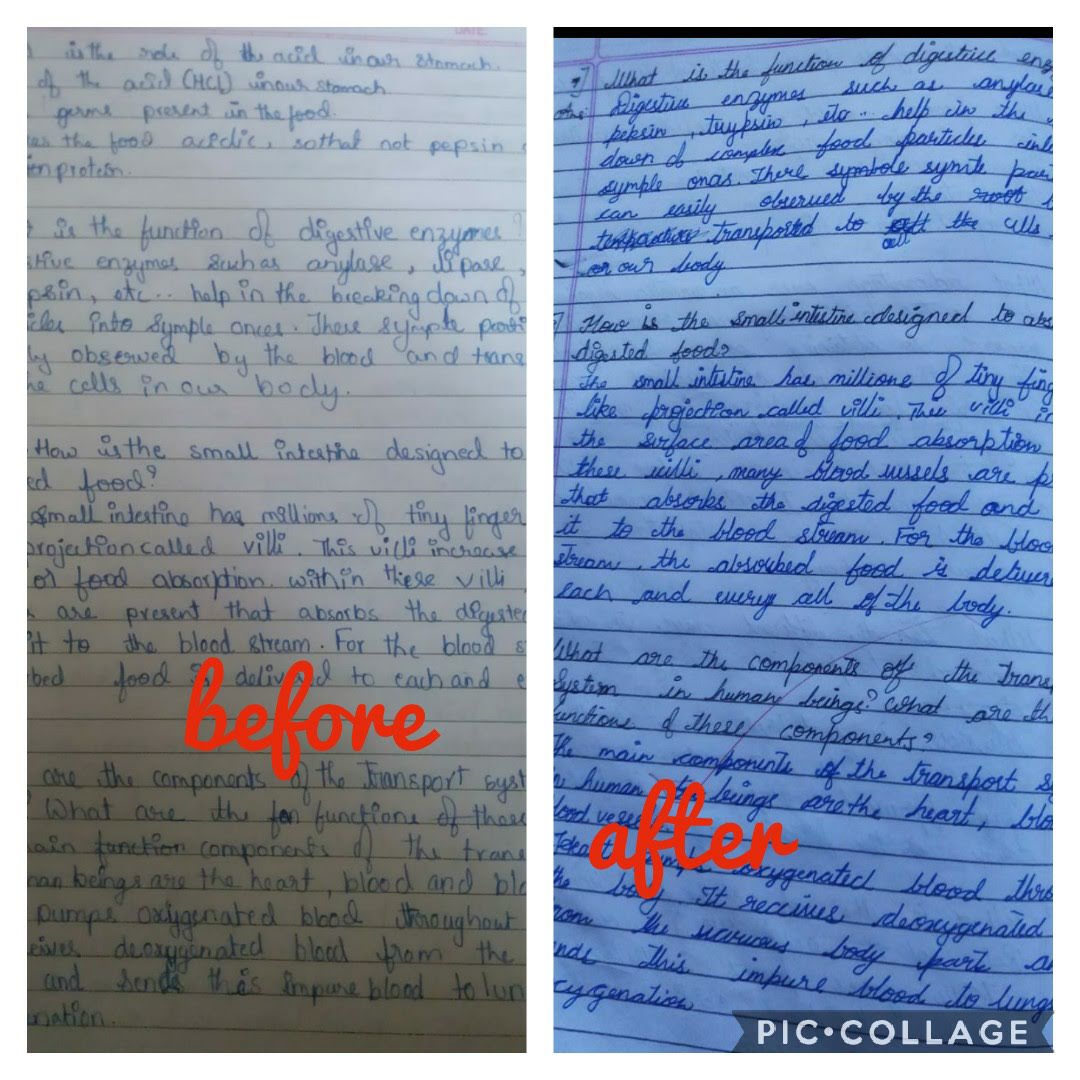 DATE
is the role of the acid in our stomach.
of the acid (HCL) in our stomach
germs present in the food.
es the food acidic, so that not pepsin
on protein.
is the function of digestive enzymes?
stive enzymes such as anylase, lipase,
psin, etc.. help in the breaking down of
icles into symple onces. These symple parti
ly observed by the blood and trans
he cells in our body.
How is the small intestine designed to
ed food?
small intestine has millions of tiny finger
projection called villi. This villi increase
of food absorption. within these villi
s are present that absorbs the digested
it to the blood stream. For the blood s
bed food is delived to each and e
before
are the components of the Transport syst
What are the functions of these
ain function components of the trans
man beings are the heart, blood and blo
Pumps oxygenated blood throughout
eives deoxygenated blood from the
and sends this impure blood to lun
nation.
What is the function of digestive enz
Digestive enzymes such as anylase
pepsin, trypsin, etc.. help in the
down of complex food particles into
symple onas. There symbole symte par
can easily observed by the
transported to cell the cells
or our body
How is the small intestine designed to abs
digested food?
The small intestine has millions of tiny fing
like projection called villi. The villi in
the surface area of food absorption
these villi, many blood vessels are p
that absorbs the digested food and
it to the blood stream. For the bloo
stream, the absorbed food is deliver
each and every all of the body.
What are the components of the trans
System in human beings? What are th
functions of these components?
The main components of the transport s
human beings are the heart, blo
lood vesse
after
Heart pumps oxygenated blood thro
the body. It receives deoxygenated
from the various body part an
nds this impure blood to lungs
xygenation
PIC•COLLAGE